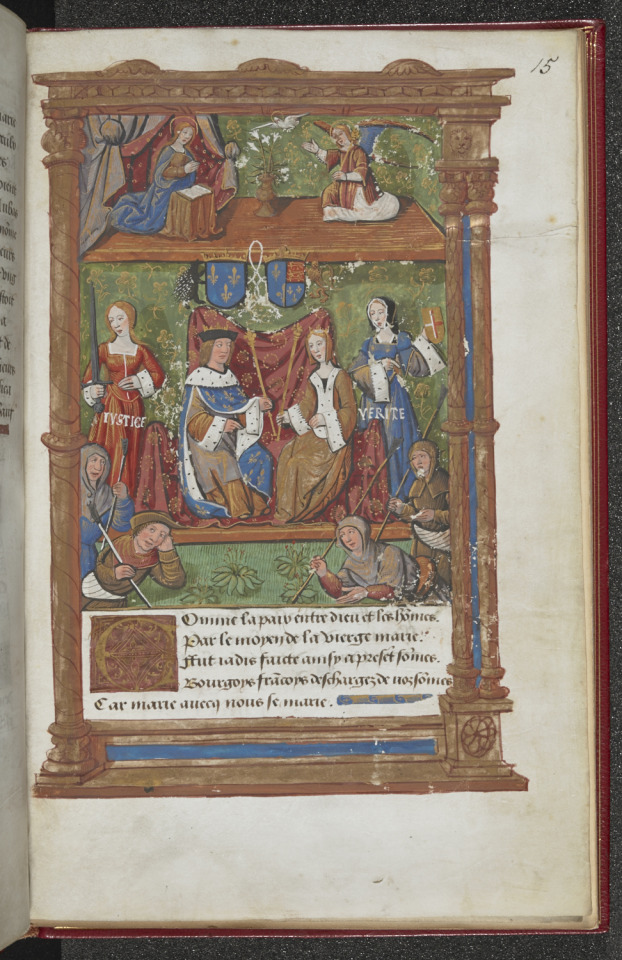 15
IVSTICE
VERITE
COmme la paix entre dieu et les hōmes.
Par le moyen de la vierge marie.
Fut iadis faicte ainsy a presēt sōmes.
Bourgoys frācoys deschargez de noz sōmes
Car marie avecq nous se marie.